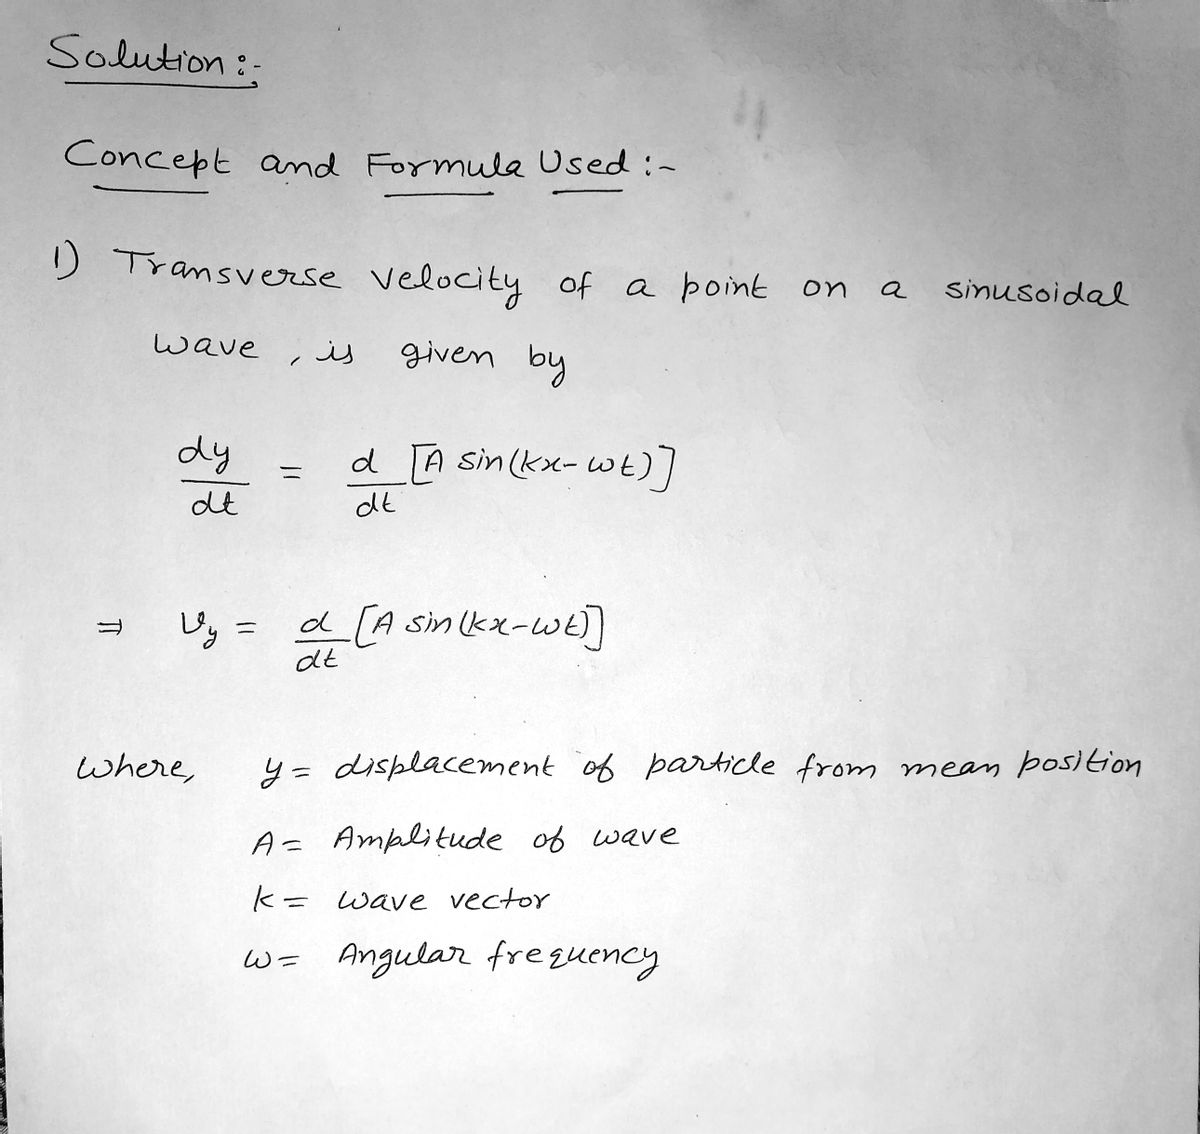 Solution :-
Concept and Formula Used :-
1) Transverse velocity of a point on a sinusoidal
wave , is given by
dy/dt = d/dt [A sin(kx-ωt)]
⇒ Vy = d/dt [A sin(kx-ωt)]
where, y = displacement of particle from mean position
A = Amplitude of wave
k = wave vector
ω = Angular frequency